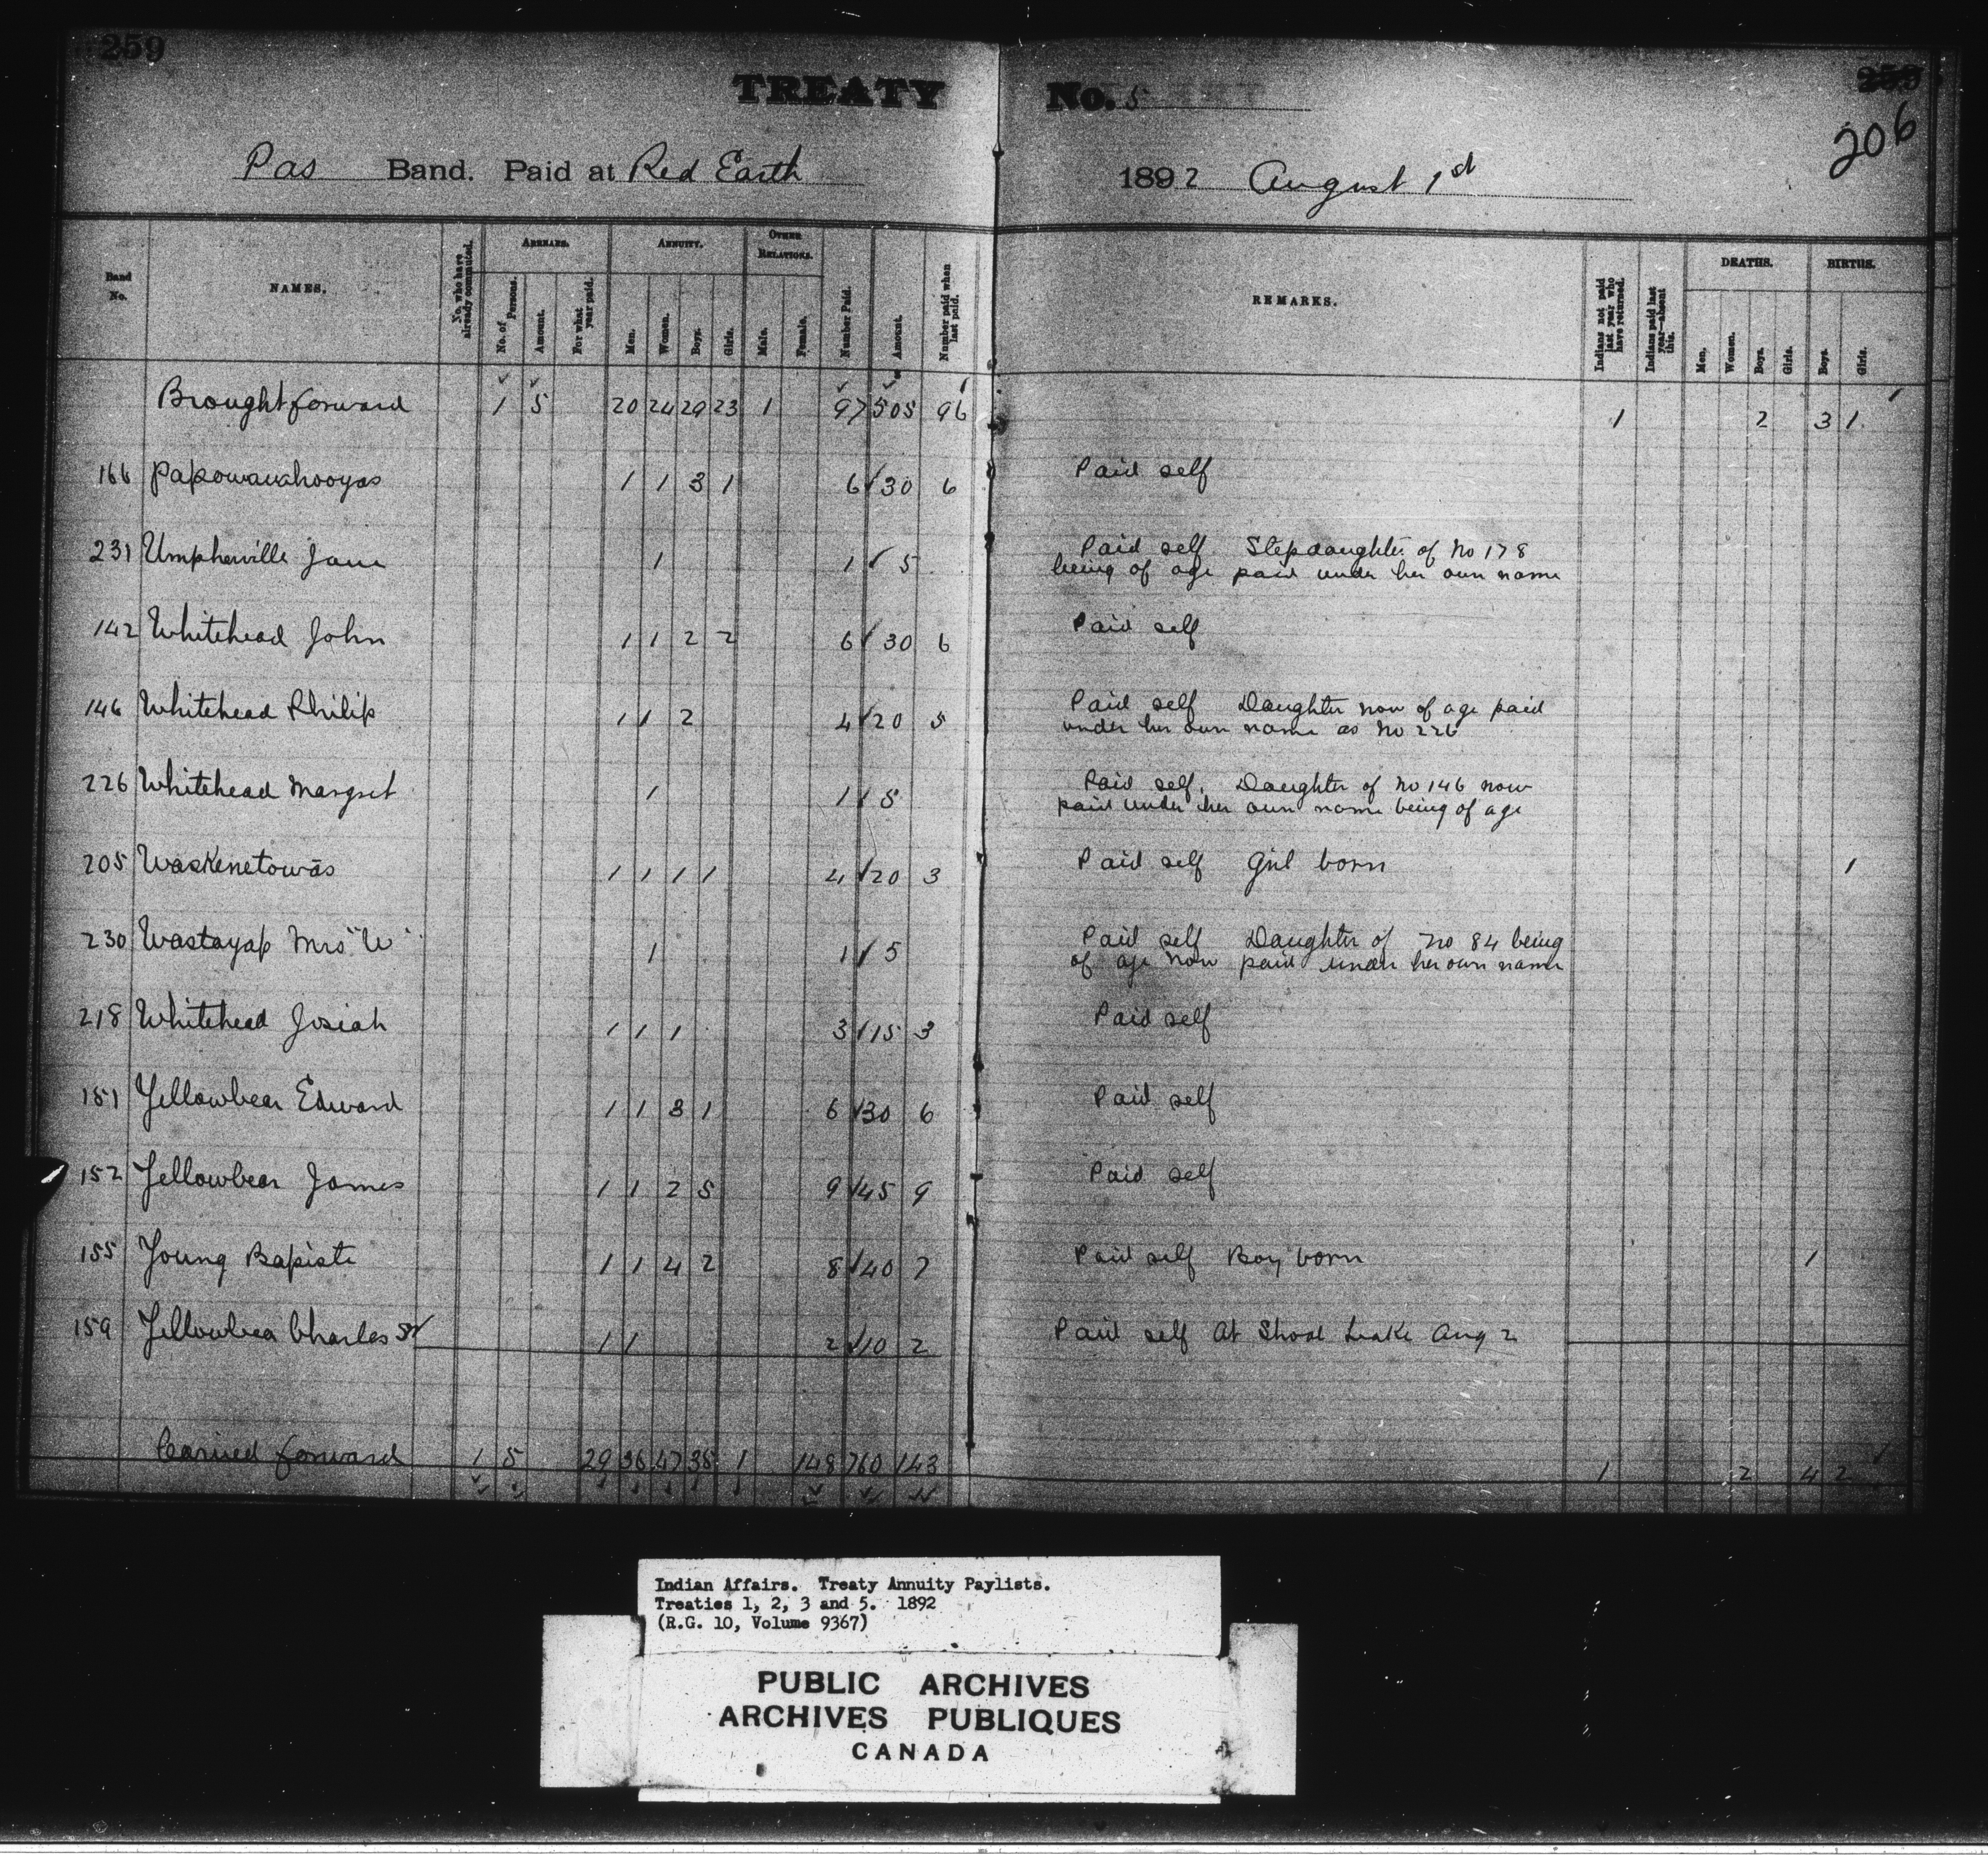 259
TREATY No. 5
206
Pas Band. Paid at Red Earth 1892 August 1st
Band No. NAMES. No. who have already commuted. ARREARS. No. of Persons. Amount. For what year paid. ANNUITY. Men. Women. Boys. Girls. OTHER RELATIONS. Male. Female. Number Paid. Amount. Number paid when last paid. REMARKS. Indians not paid last year who have returned. Indians paid last year—absent this. DEATHS. Men. Women. Boys. Girls. BIRTHS. Boys. Girls.
Brought forward 1 5 20 24 29 23 1 97 505 96 1 2 3 1
166 Papowavahooyas 1 1 3 1 6 30 6 Paid self
231 Umpherville Jane 1 1 5 Paid self Stepdaughter of No 178
being of age paid under her own name
142 Whitehead John 1 1 2 2 6 30 6 Paid self
146 Whitehead Philip 1 1 2 4 20 5 Paid self Daughter now of age paid
under her own name as No 226
226 Whitehead Margret 1 1 5 Paid self. Daughter of No 146 now
paid under her own name being of age
205 Waskenetowās 1 1 1 1 4 20 3 Paid self Girl born 1
230 Wastayap Mrs "W" 1 1 5 Paid self Daughter of No 84 being
of age now paid under her own name
218 Whitehead Josiah 1 1 1 3 15 3 Paid self
151 Yellowbear Edward 1 1 3 1 6 30 6 Paid self
152 Yellowbear James 1 1 2 5 9 45 9 Paid self
155 Young Bapiste 1 1 4 2 8 40 7 Paid self Boy born 1
159 Yellowbear Charles Sr 1 1 2 10 2 Paid self At Shoal Leake Aug 2
Carried forward 1 5 29 36 47 35 1 148 760 143 1 2 4 2
Indian Affairs. Treaty Annuity Paylists.
Treaties 1, 2, 3 and 5. 1892
(R.G. 10, Volume 9367)
PUBLIC ARCHIVES
ARCHIVES PUBLIQUES
CANADA